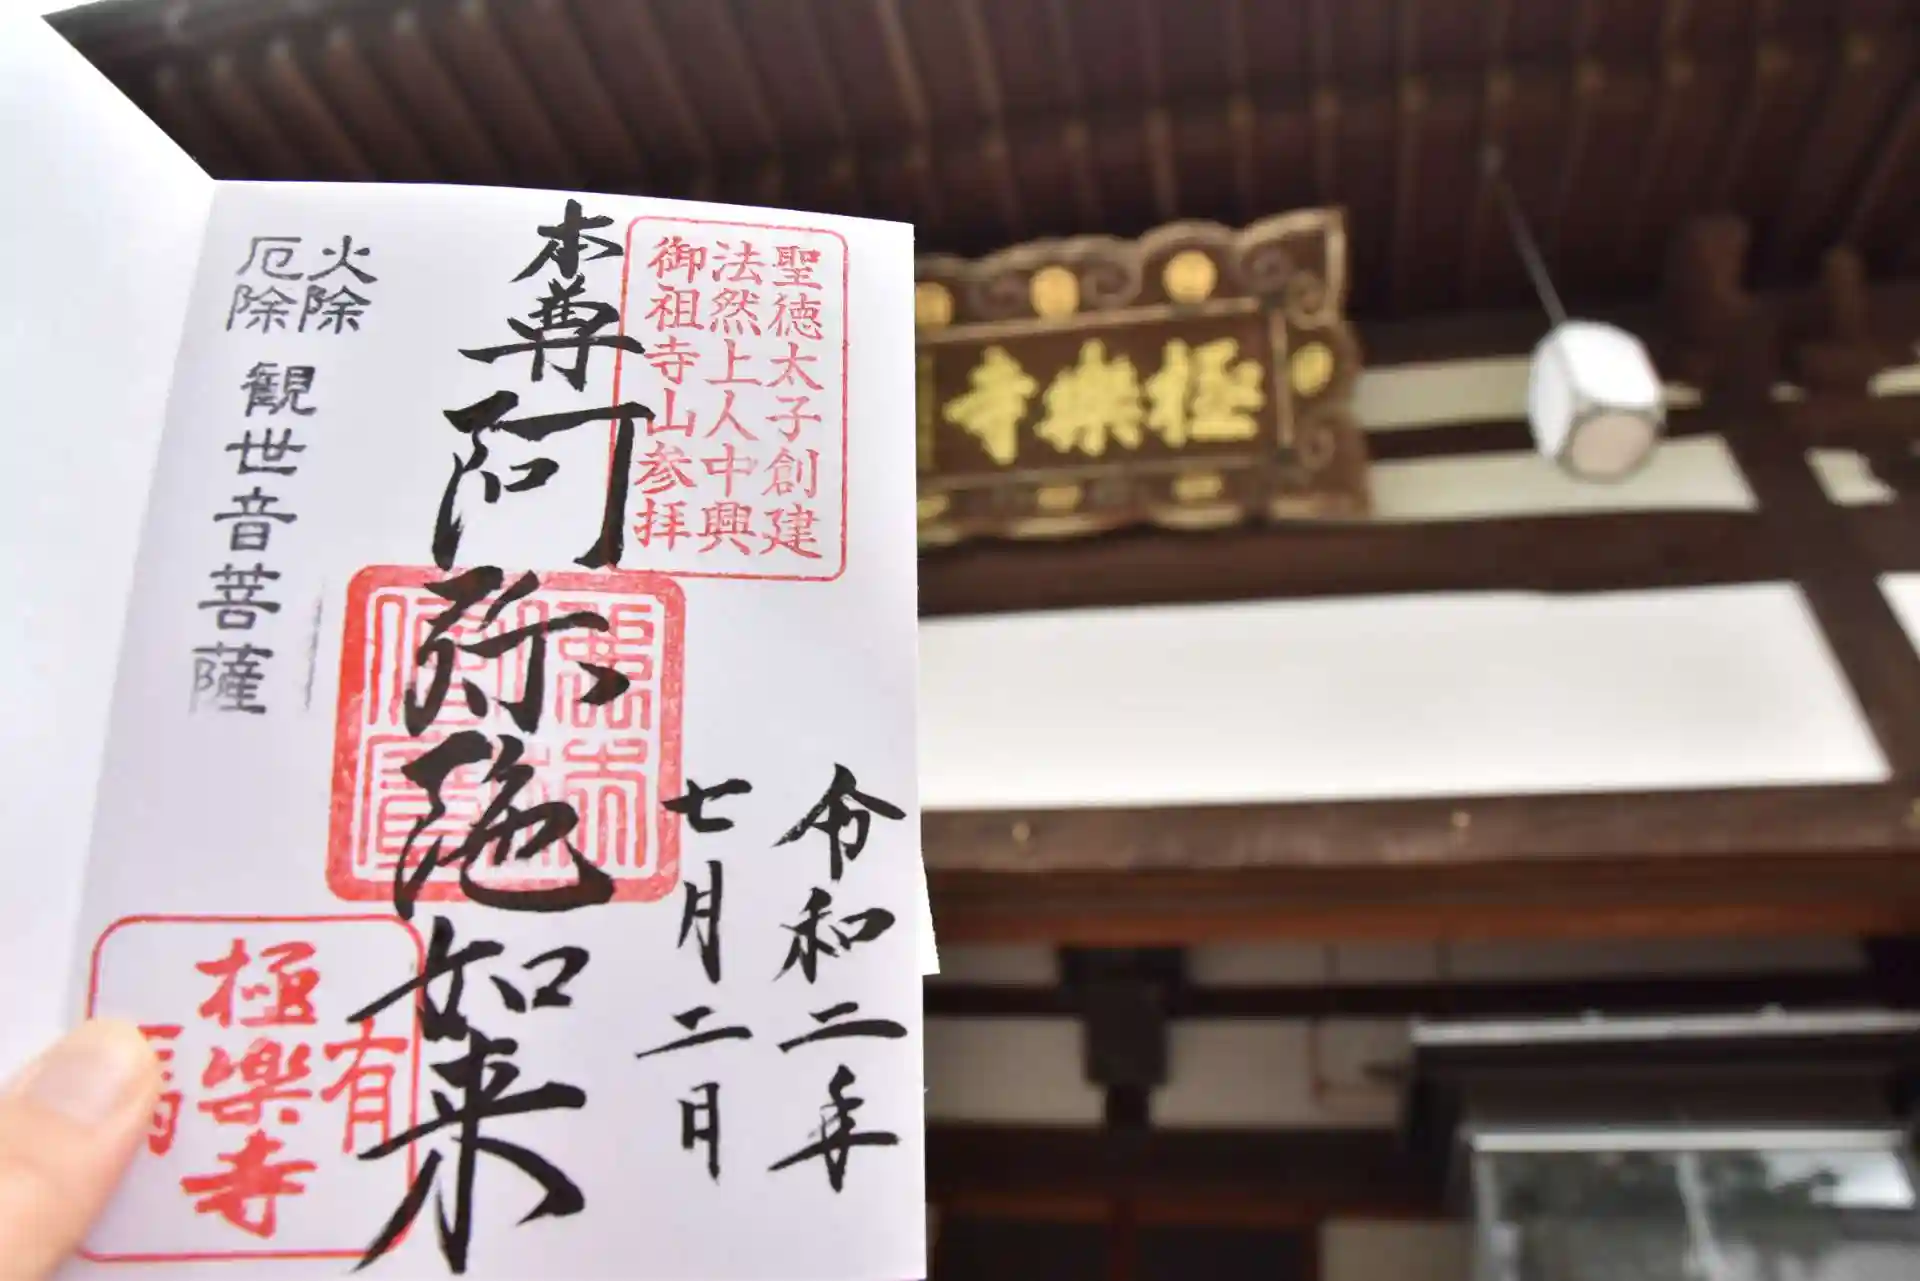 聖徳太子創建
法然上人中興
御祖寺山参拝
本尊阿弥陀如来
令和二年
七月二日
火除
厄除
観世音菩薩
有
極楽寺
極樂寺